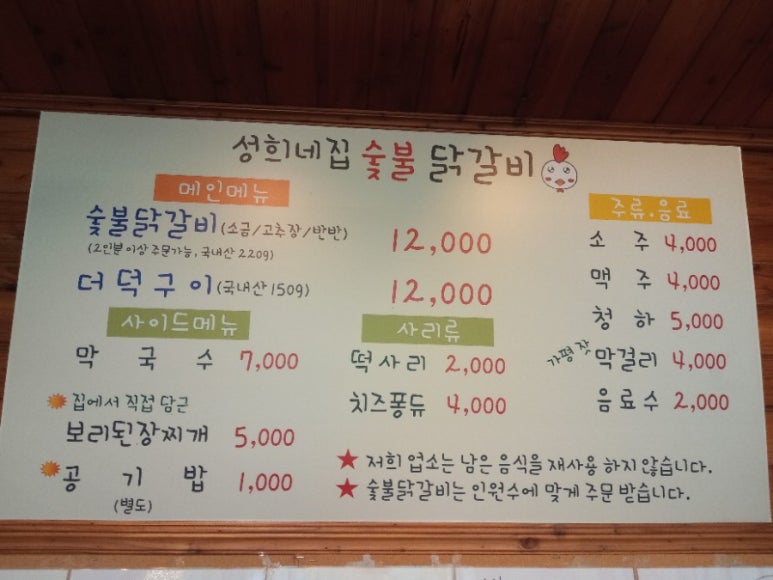 성희네집 숯불 닭갈비
메인메뉴
숯불닭갈비(소금/고추장/반반) 12,000
(2인분 이상 주문가능, 국내산 220g)
더덕구이(국내산 150g) 12,000
사이드메뉴
막 국 수 7,000
집에서 직접 담근
보리된장찌개 5,000
공 기 밥 1,000
(별도)
사리류
떡사리 2,000
치즈퐁듀 4,000
주류.음료
소 주 4,000
맥 주 4,000
청 하 5,000
가평잣 막걸리 4,000
음료수 2,000
★ 저희 업소는 남은 음식을 재사용 하지 않습니다.
★ 숯불닭갈비는 인원수에 맞게 주문 받습니다.